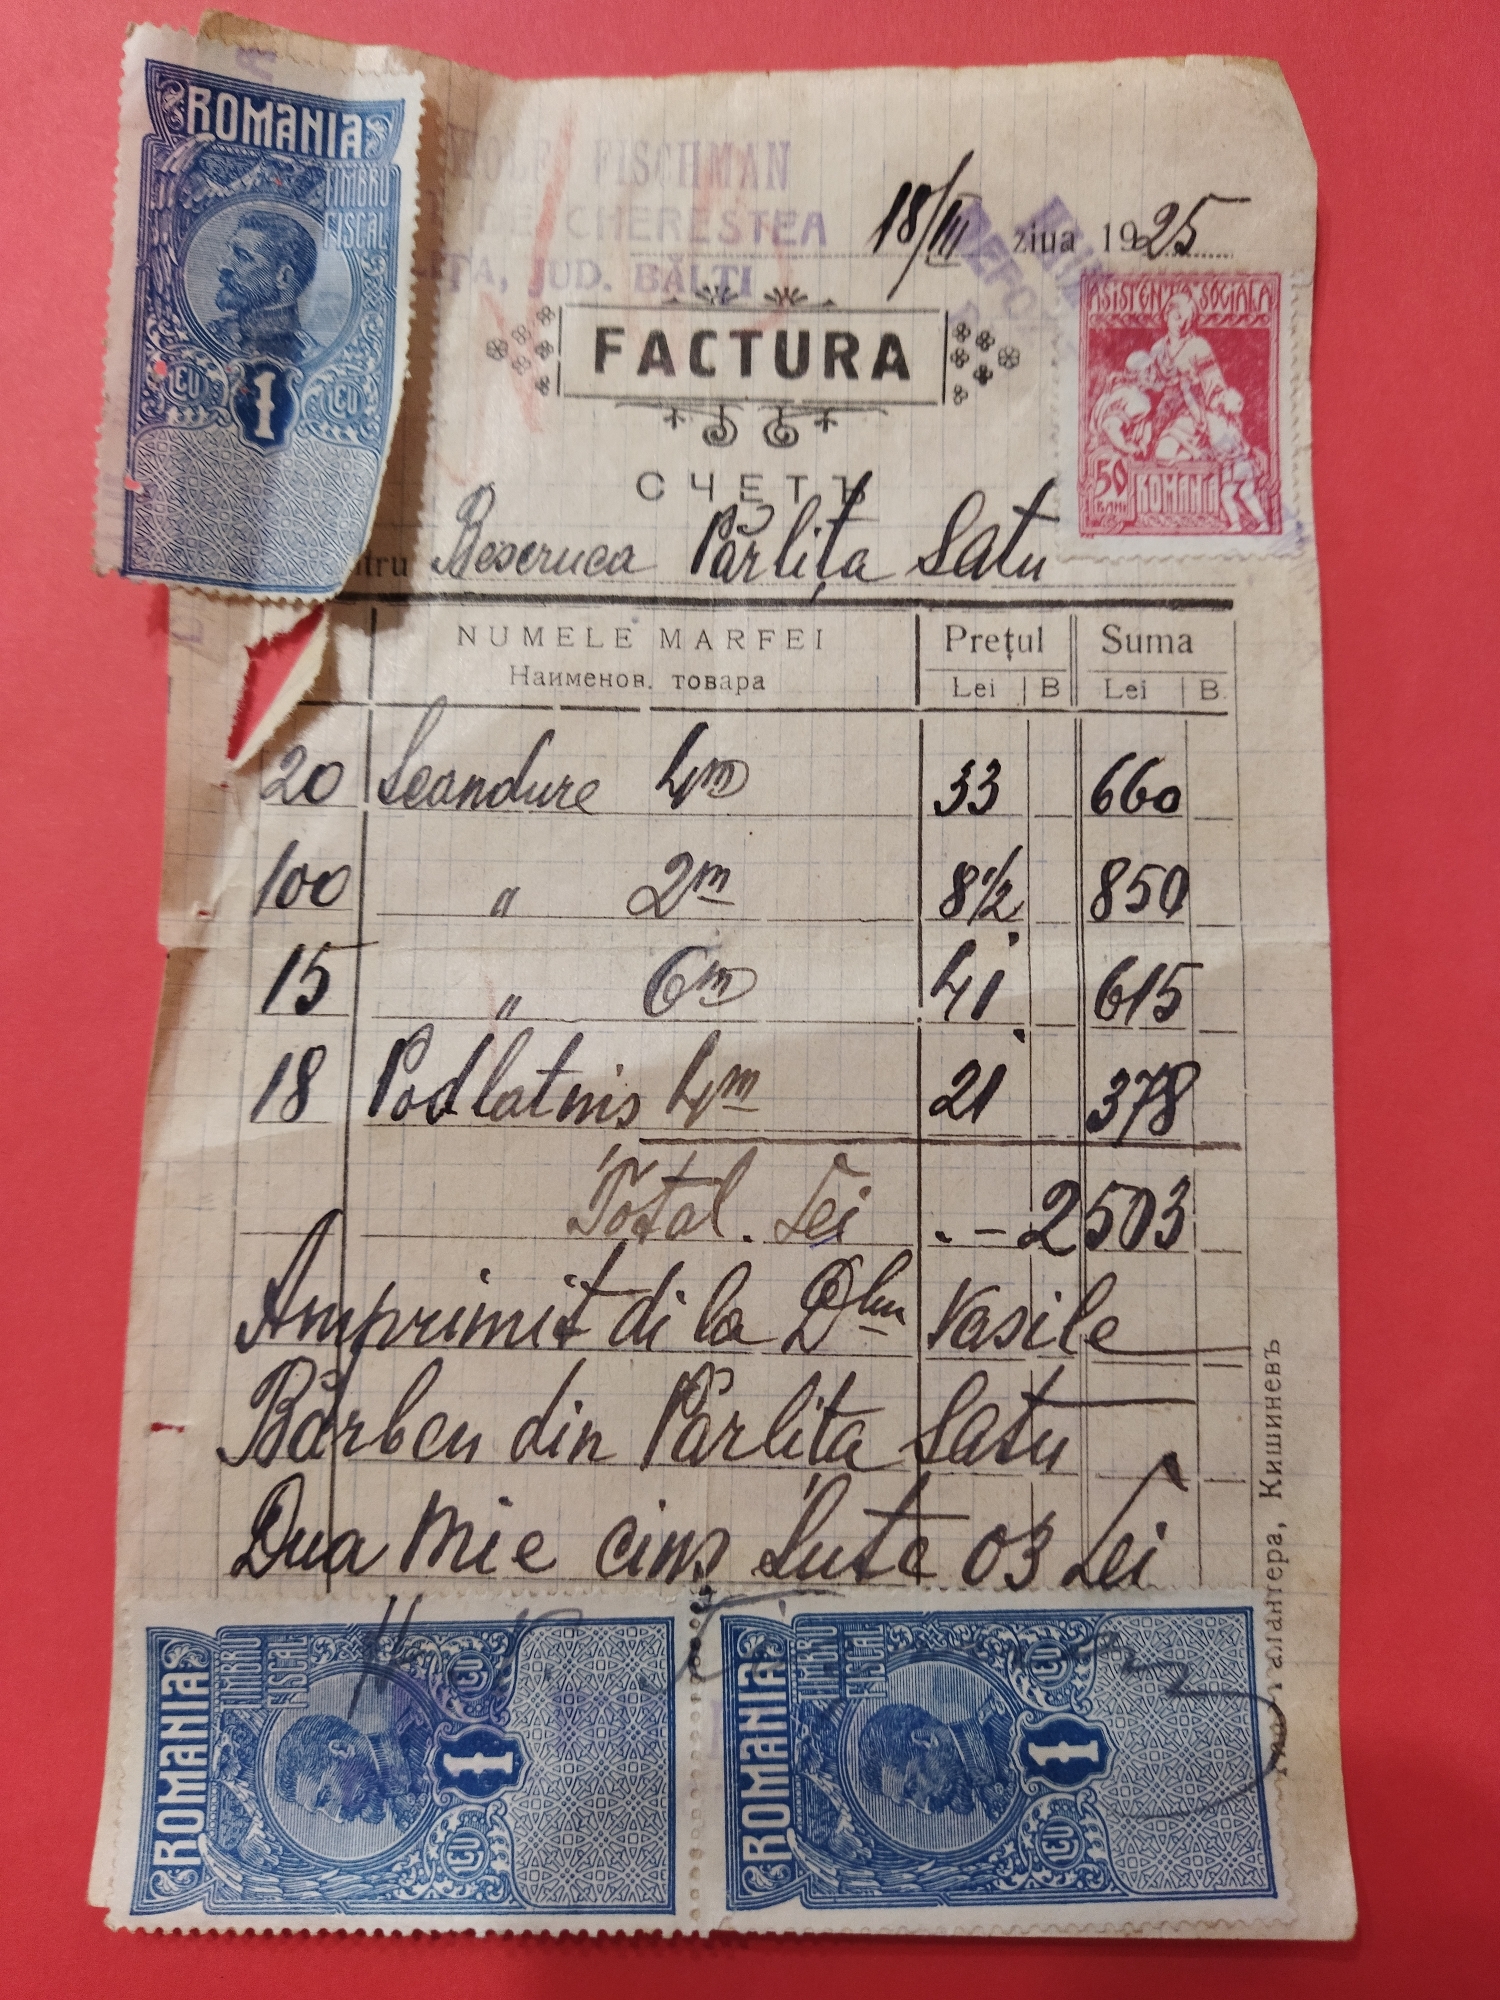 ROMANIA
TIMBRU
FISCAL
LEU 1 LEU
FISCHMAN
DE CHERESTEA
JUD. BĂLȚI
18/III ziua 1925
ASISTENȚA SOCIALA
50
BANI ROMANIA
FACTURA
СЧЕТЪ
Beseruca Părlița Satu
NUMELE MARFEI Prețul Suma
Наименов. товара Lei B Lei B.
20 Scandure 4m 33 660
100 " 2m 8½ 850
15 " 6m 41 615
18 Podlatnis 4m 21 378
Total. Lei .- 2503
Amprimit di la Dlui Vasile
Bărbcu din Părlita Satu
Dua Mie cins Sute 03 Lei
ROMANIA
TIMBRU
FISCAL
LEU 1 LEU
ROMANIA
TIMBRU
FISCAL
LEU 1 LEU
Кишиневъ